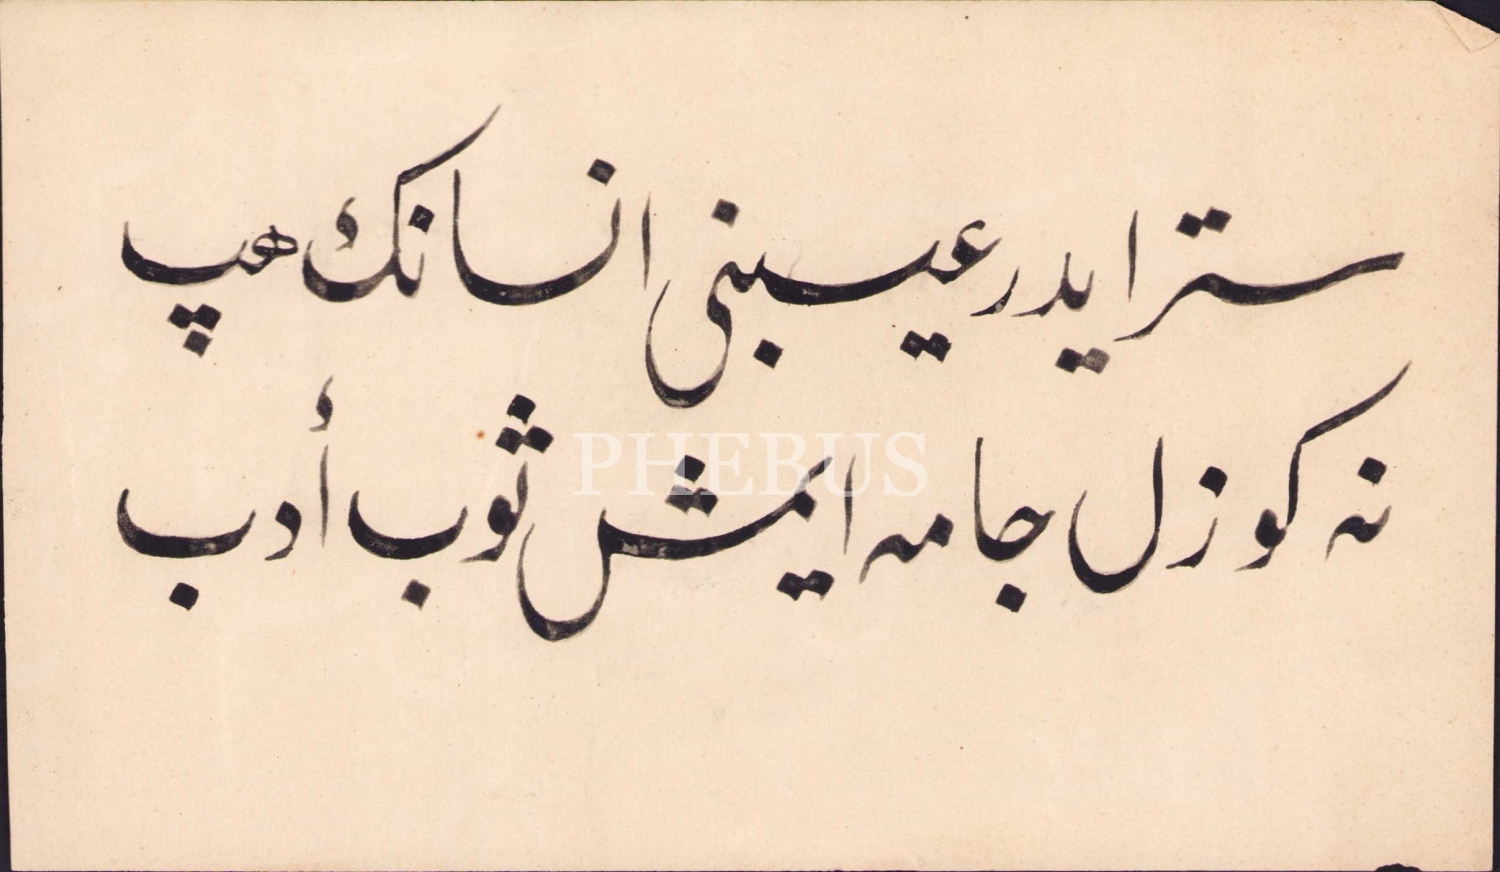 ستر ايدر عيبنى انسانك هپ
نه كوزل جامه ايمش ثوب أدب
PHEBUS